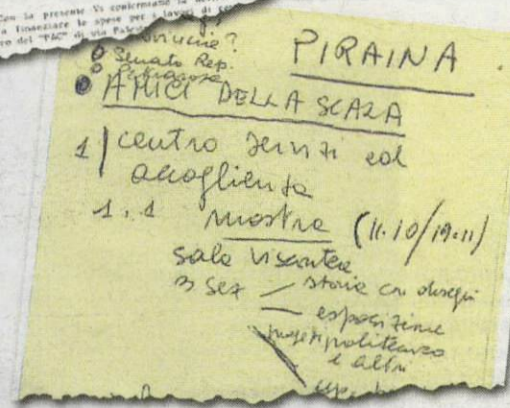 Con la presente Vi confermiamo la
a finanziare le spese per i lavori di
ro del "PAC" di via
Province?
Senato Rep.
PIRAINA
AMICI DELLA SCALA
1 centro servizi ed
accoglienza
1.1 mostra (11.10/19.11)
sala viscontea
3 sez — storia con disegni
— esposizione
progetti politecnico
e altri